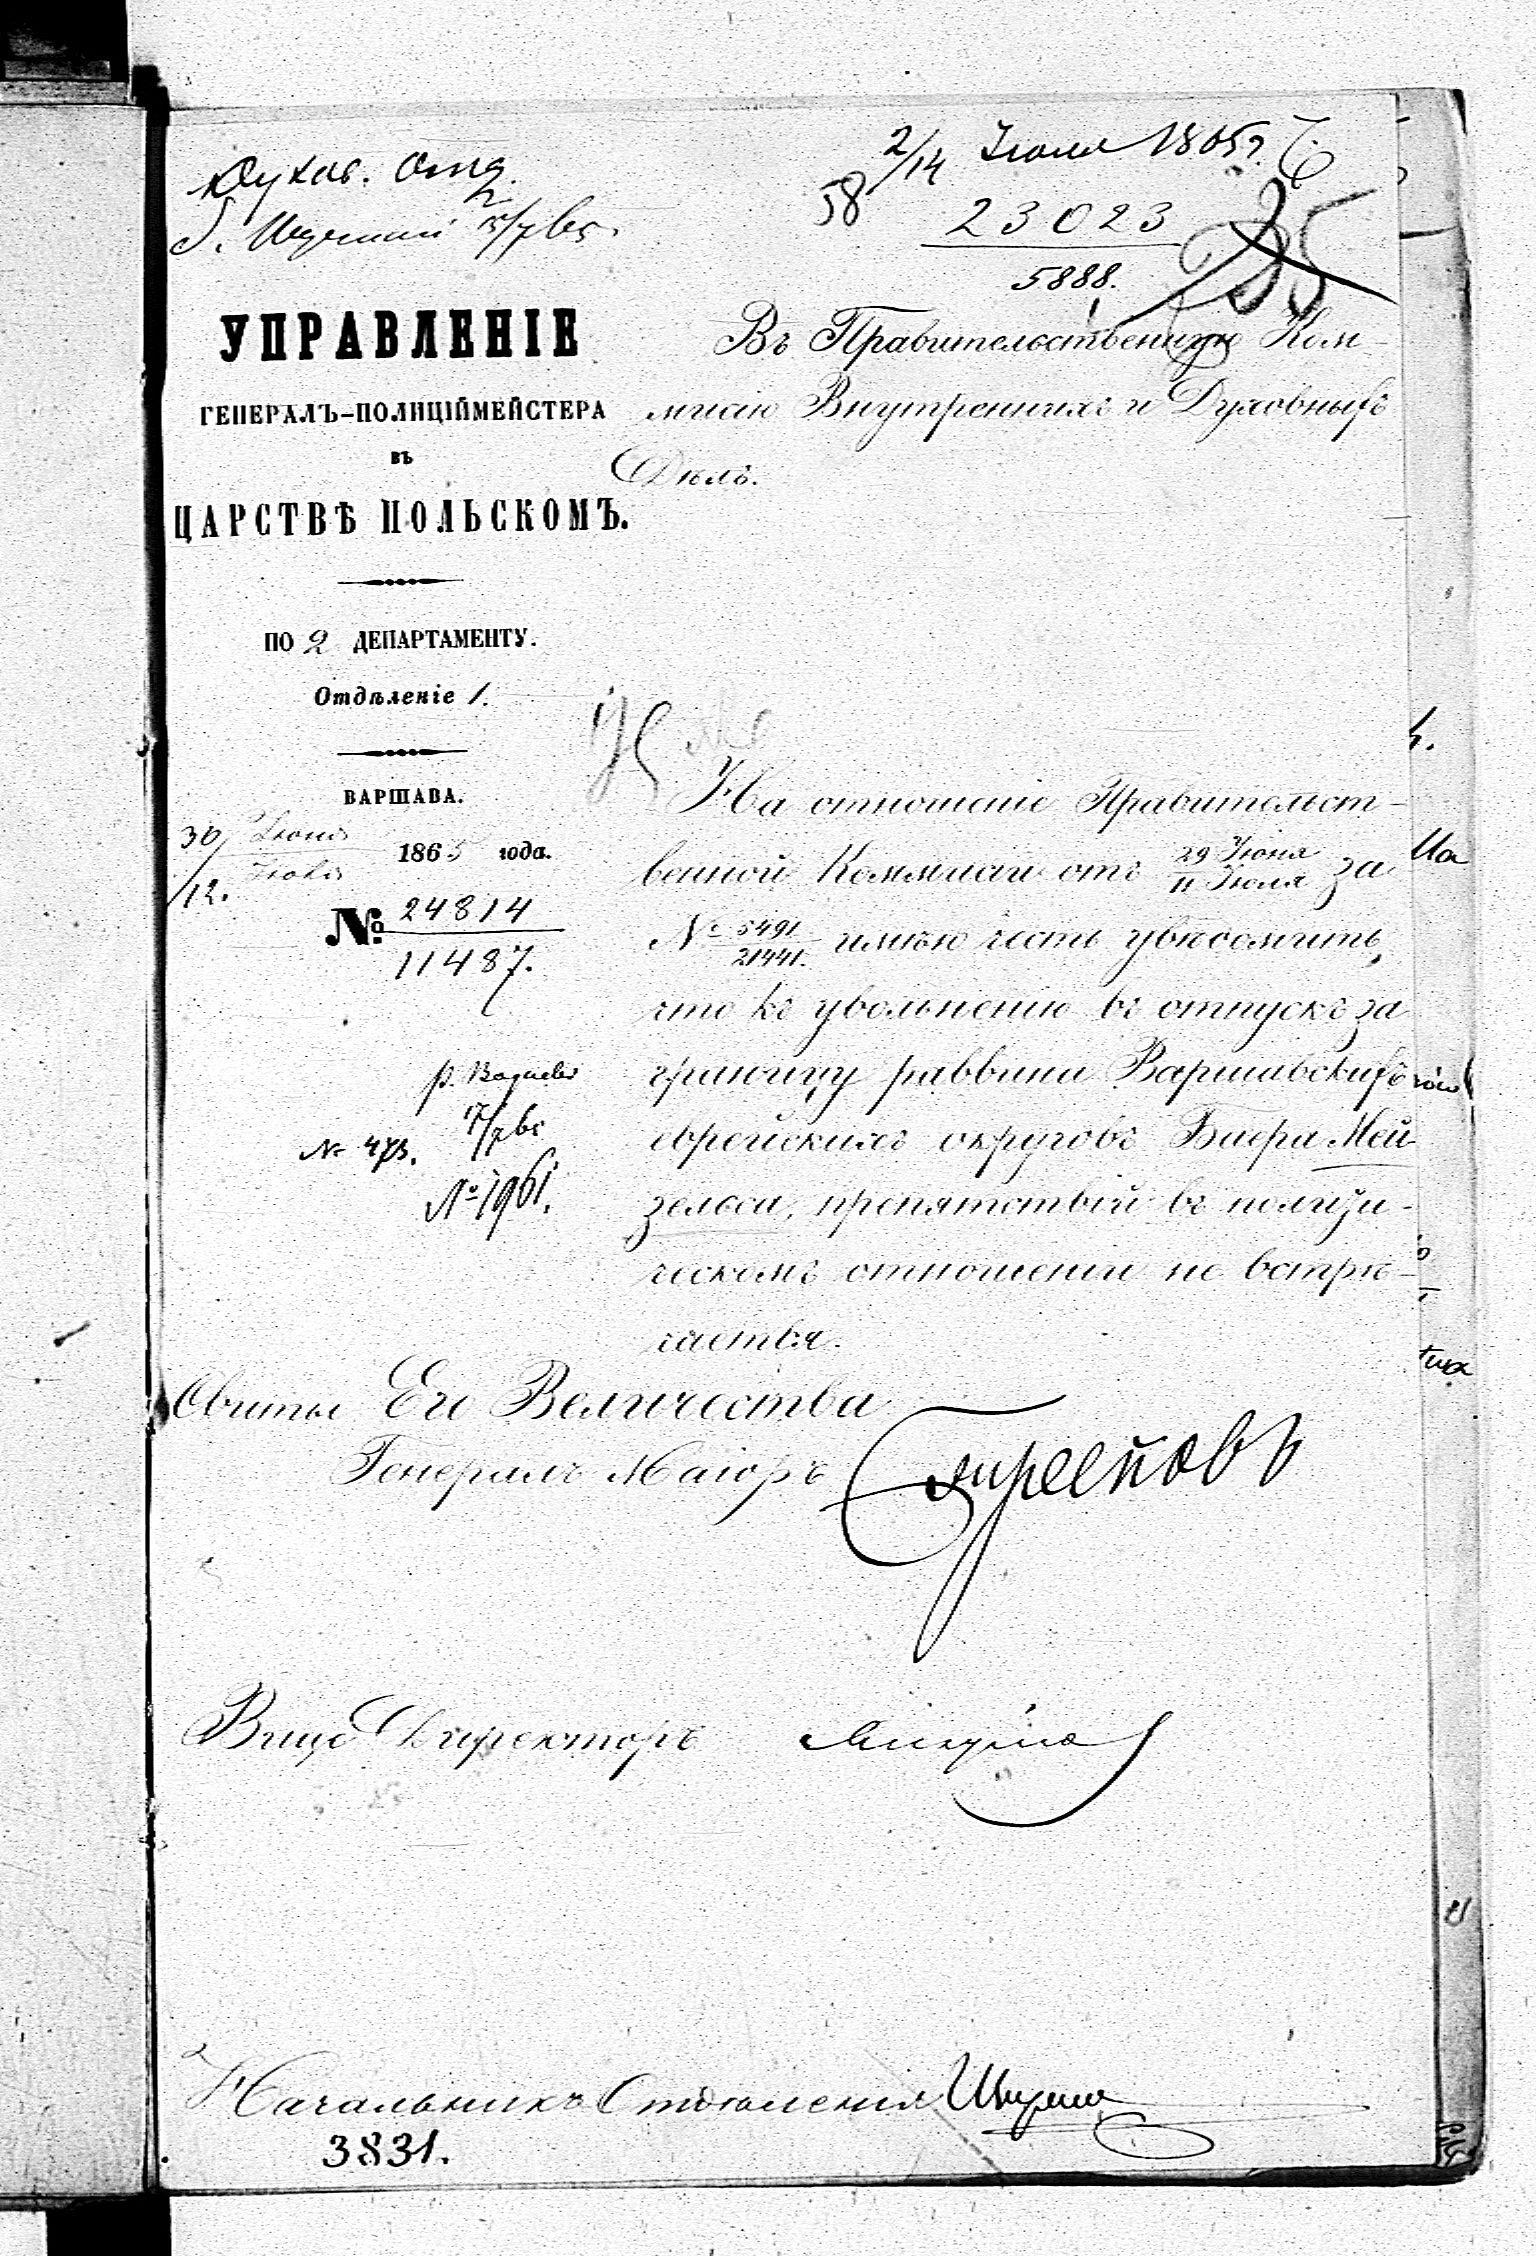 Духов. Отд.
2/14 Іюля 1865 г.
58
23023
5888.
УПРАВЛЕНІЕ
ГЕНЕРАЛЪ-ПОЛИЦІЙМЕЙСТЕРА
въ
ЦАРСТВѢ ПОЛЬСКОМЪ.
ПО 2 ДЕПАРТАМЕНТУ.
Отдѣленіе 1.
ВАРШАВА.
30/12. Іюня Іюля 1865 года.
№ 24814
11487.
№ 473.
17/7 65
№ 1961.
Въ Правительственную Ком-
мисію Внутреннихъ и Духовныхъ
Дѣлъ.
На отношеніе Правительст-
венной Коммисіи отъ 29 Іюня / 11 Іюля за
№ 5491/21441. имѣю честь увѣдомить,
что къ увольненію въ отпускъ за
границу раввина Варшавскихъ
еврейскихъ округовъ Баера Мей-
зельса, препятствій въ полити-
ческомъ отношеніи не встрѣ-
чается.
Свиты Его Величества
Генералъ Маіоръ Треповъ
Вице Директоръ
Начальникъ Отдѣленія
3831.